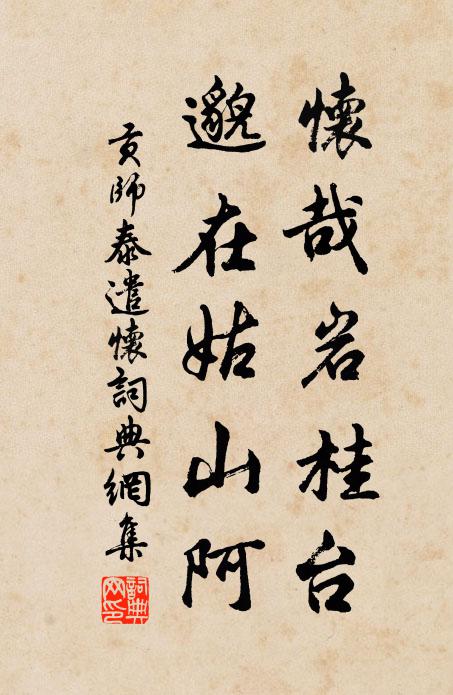 懷哉岩桂台
邈在姑山阿
貢師泰遣懷詞典網集
詞典網印